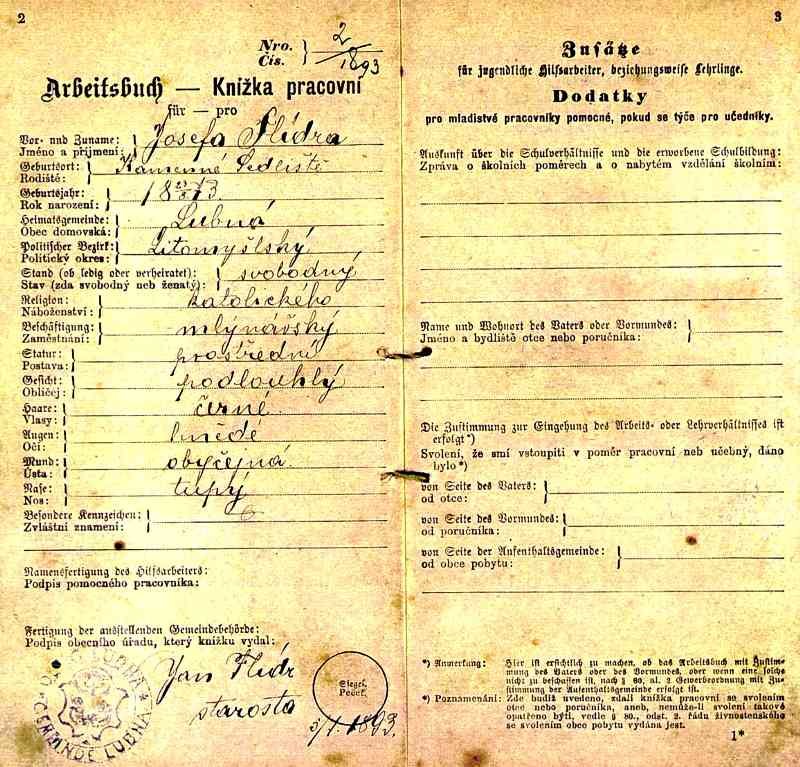 2
Nro.
Čís.
2/1893
Arbeitsbuch — Knížka pracovní
für — pro
Vor- und Zuname:
Jméno a příjmení:
Josefa Flídra
Geburtsort:
Rodiště:
Kamenné Sedliště
Geburtsjahr:
Rok narození:
1873.
Heimatsgemeinde:
Obec domovská:
Lubná
Politischer Bezirk:
Politický okres:
Litomyšlský
Stand (ob ledig oder verheiratet):
Stav (zda svobodný neb ženatý):
svobodný
Religion:
Náboženství:
katolického
Beschäftigung:
Zaměstnání:
mlýnářský
Statur:
Postava:
prostřední
Gesicht:
Obličej:
podlouhlý
Haare:
Vlasy:
černé
Augen:
Oči:
hnědé
Mund:
Ústa:
obyčejná
Nase:
Nos:
tupý
Besondere Kennzeichen:
Zvláštní znamení:
Namensfertigung des Hilfsarbeiters:
Podpis pomocného pracovníka:
Fertigung der ausstellenden Gemeindebehörde:
Podpis obecního úřadu, který knížku vydal:
Jan Flídr
starosta
Siegel.
Pečeť.
5/1. 1893.
GEMEINDE LUBNA
3
Zusätze
für jugendliche Hilfsarbeiter, beziehungsweise Lehrlinge.
Dodatky
pro mladistvé pracovníky pomocné, pokud se týče pro učedníky.
Auskunft über die Schulverhältnisse und die erworbene Schulbildung:
Zpráva o školních poměrech a o nabytém vzdělání školním:
Name und Wohnort des Vaters oder Vormundes:
Jméno a bydliště otce nebo poručníka:
Die Zustimmung zur Eingehung des Arbeits- oder Lehrverhältnisses ist
erfolgt*)
Svolení, že smí vstoupiti v poměr pracovní neb učebný, dáno
bylo*)
von Seite des Vaters:
od otce:
von Seite des Vormundes:
od poručníka:
von Seite der Aufenthaltsgemeinde:
od obce pobytu:
*) Anmerkung: Hier ist ersichtlich zu machen, ob das Arbeitsbuch mit Zustim-
mung des Vaters oder des Vormundes, oder wenn eine solche
nicht zu beschaffen ist, nach § 80, al. 2. Gewerbeordnung mit Zu-
stimmung der Aufenthaltsgemeinde erfolgt ist.
*) Poznamenání: Zde budiž uvedeno, zdali knížka pracovní se svolením
otce nebo poručníka, aneb, nemůže-li svolení takové
opatřeno býti, vedle § 80., odst. 2. řádu živnostenského
se svolením obce pobytu vydána jest.
1*